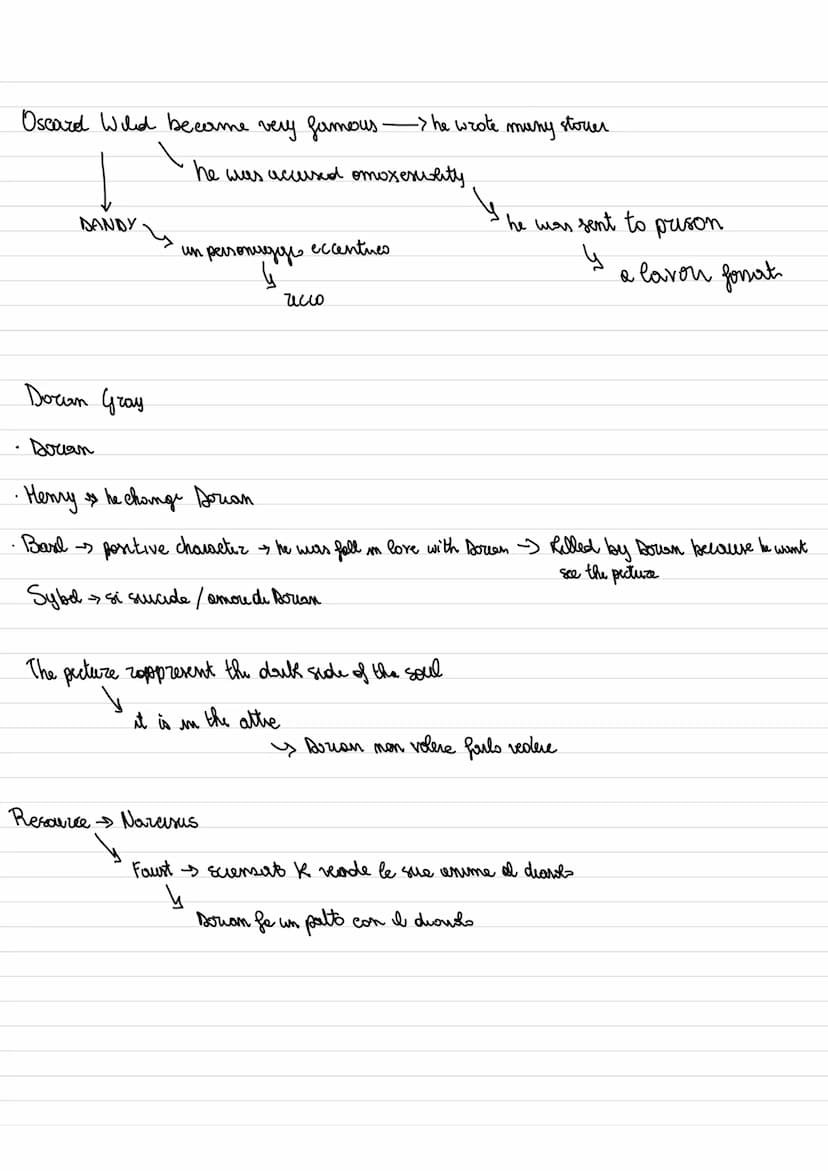 Oscard Wild became very famous → he wrote many stories
he was accused omoxexuality
DANDY
he was sent to prison
un personaggio eccentrico
a lavori forzati
ricco
Dorian Gray
· Dorian
· Henry → he change Dorian
· Basil → positive character → he was fell in love with Dorian → killed by Dorian because he want
see the picture
Sybil → si suicida / amore di Dorian
The picture rappresent the dark side of the soul
it is in the attic
→ Dorian non volere farlo vedere
Resource → Narcisus
Faust → scienziato k vende le sue anime al diavolo
Dorian fa un patto con il diavolo